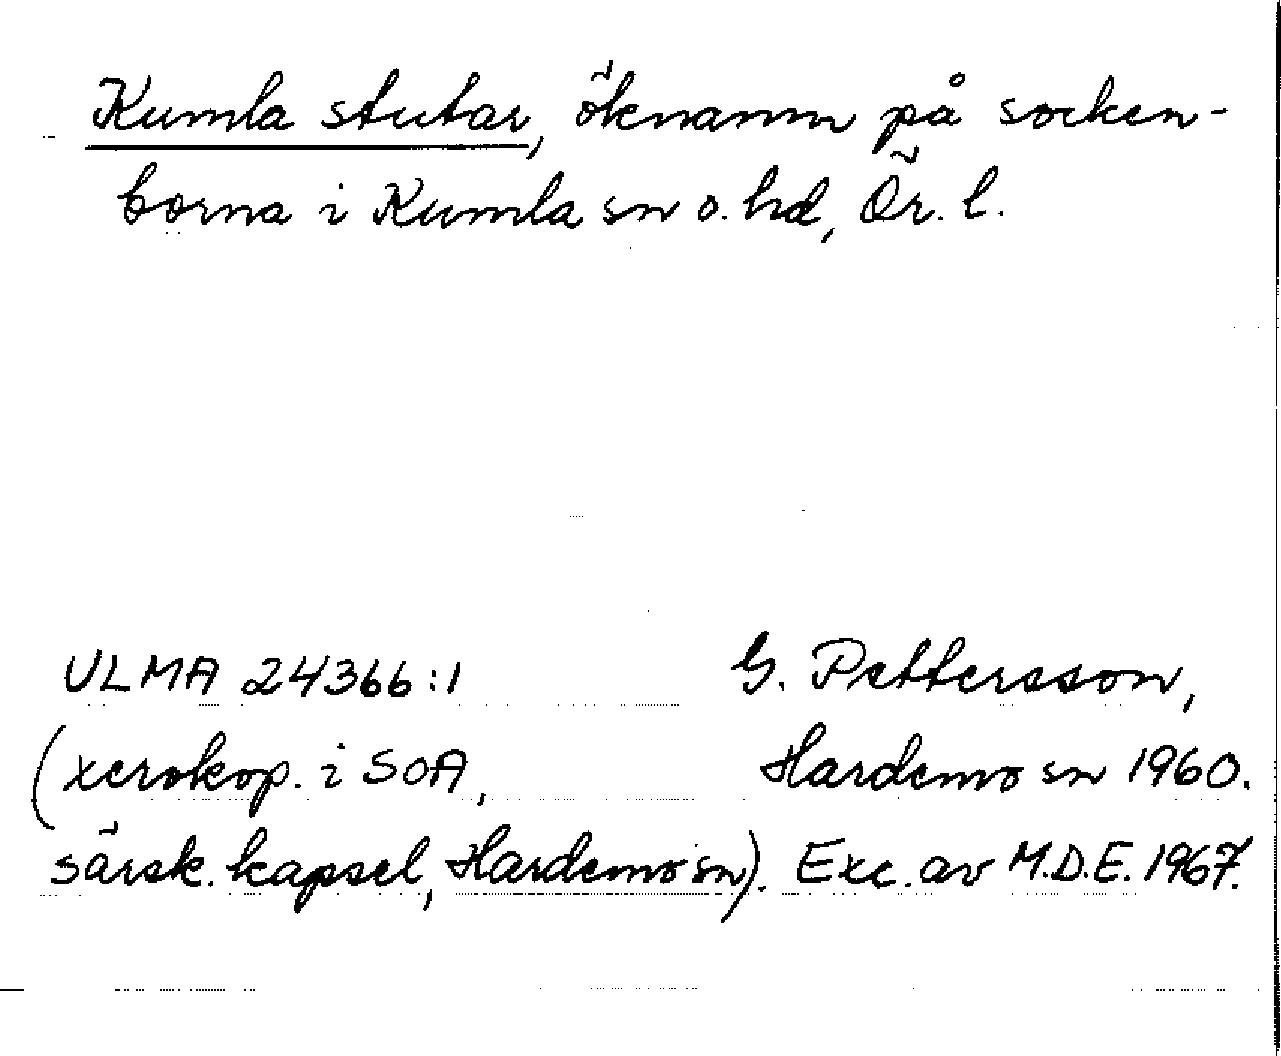 Kumla stutar, öknamn på socken-
borna i Kumla sn o. hd, Ör. l.
ULMA 24366:1 G. Pettersson,
(xerokop. i SOA, Hardemo sn 1960.
särsk. kapsel, Hardemo sn). Exc. av M.D.E. 1967.